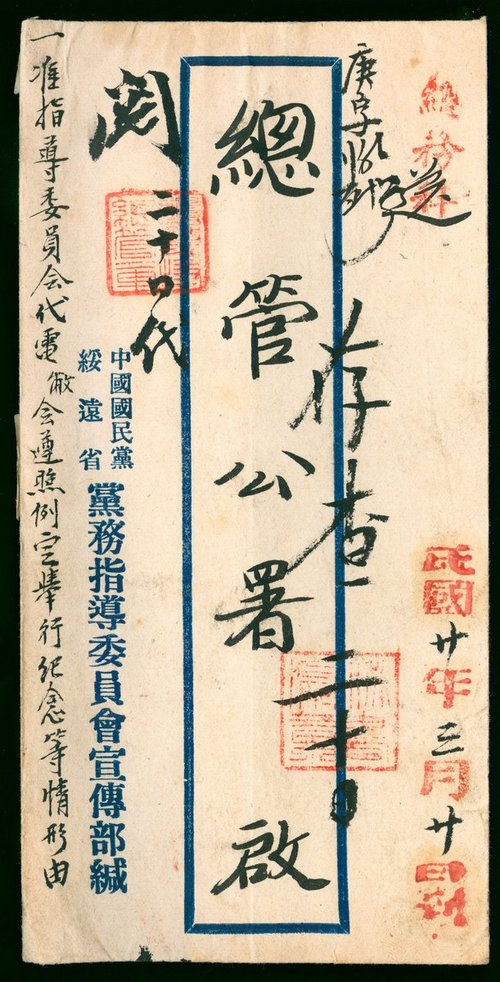 總務科
送
民國廿年三月廿日到
庚字
存查 二十日
總管公署 啟
閱
二十日代
中國國民黨
綏遠省
黨務指導委員會宣傳部緘
一准指導委員会代電敝会遵照例定舉行纪念等情形由